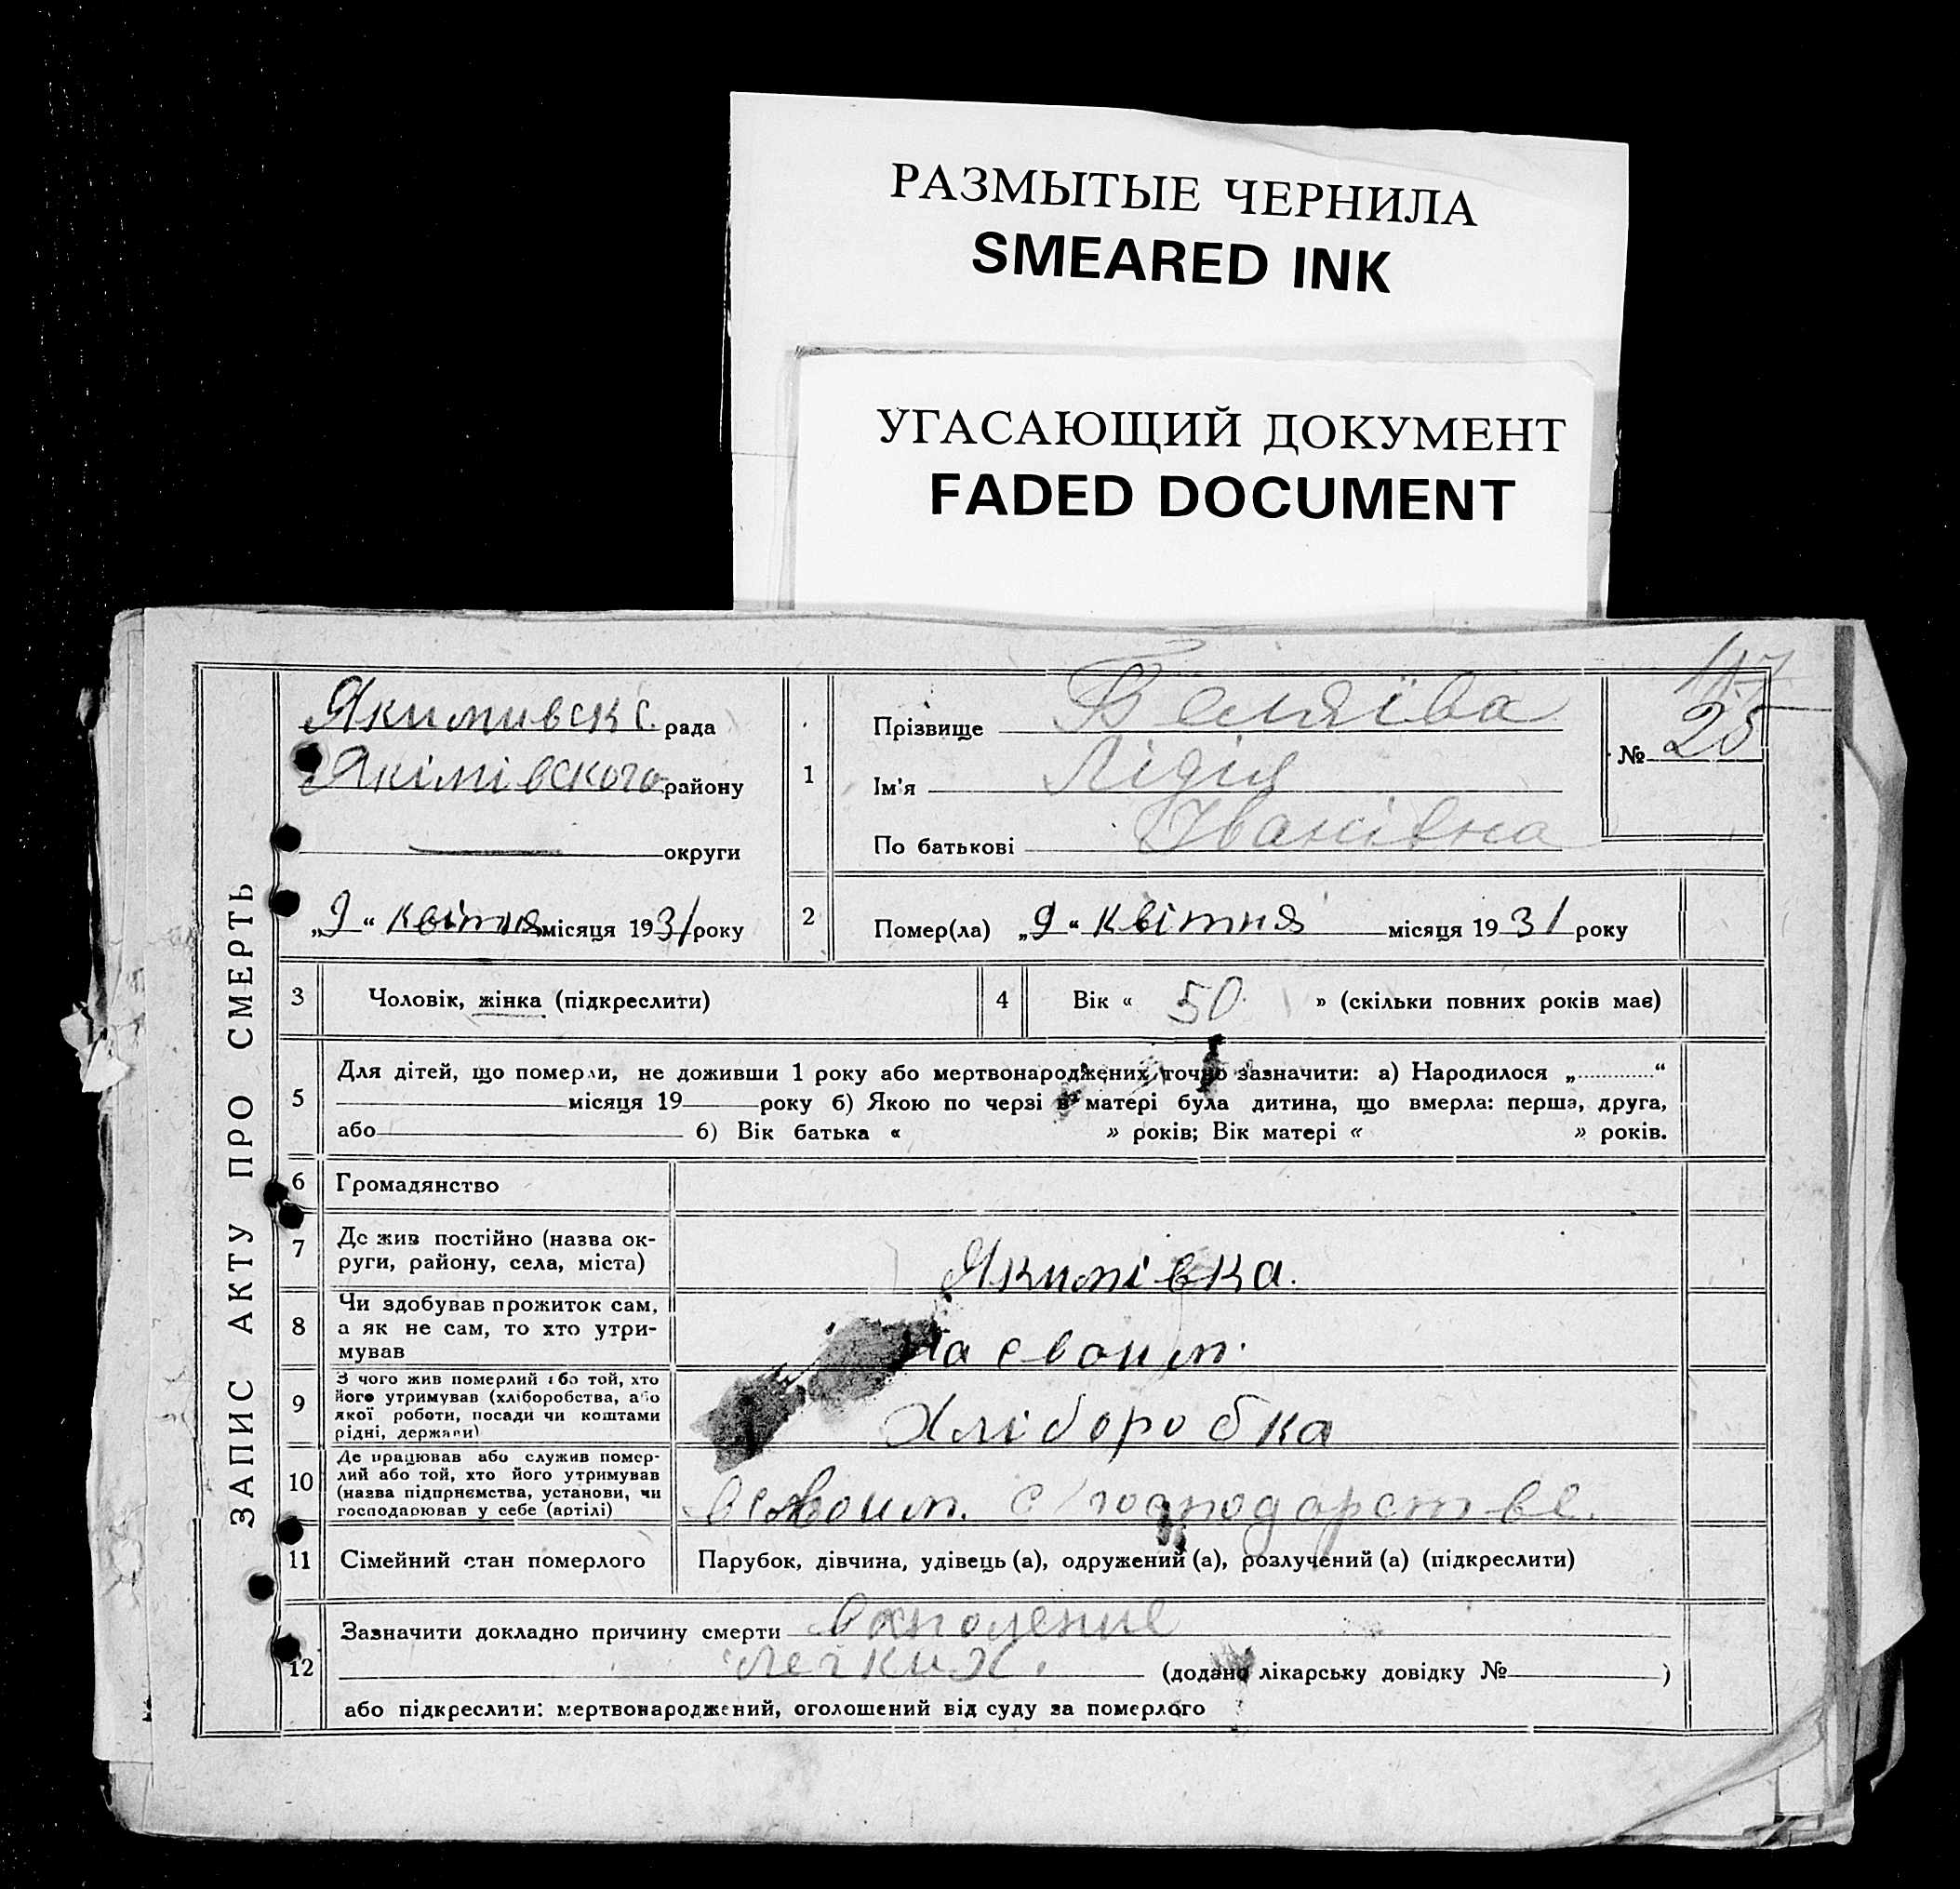 РАЗМЫТЫЕ ЧЕРНИЛА
SMEARED INK
УГАСАЮЩИЙ ДОКУМЕНТ
FADED DOCUMENT
ЗАПИС АКТУ ПРО СМЕРТЬ
117
Якимивск с. рада
Якімівского району
округи
„9“ квітня місяця 1931 року
1
Прізвище Беляїва
Ім'я Лідія
По батькові Іванівна
№ 25
2
Помер(ла) „9“ квітня місяця 1931 року
3 Чоловік, жінка (підкреслити)
4 Вік « 50 » (скільки повних років має)
5
Для дітей, що померли, не доживши 1 року або мертвонароджених точно зазначити: а) Народилося „ “
місяця 19 року б) Якою по черзі в матері була дитина, що вмерла: перша, друга,
або б) Вік батька « » років; Вік матері « » років.
6 Громадянство
7
Де жив постійно (назва ок-
руги, району, села, міста)
Якимівка.
8
Чи здобував прожиток сам,
а як не сам, то хто утри-
мував
На своим.
9
З чого жив померлий або той, хто
його утримував (хліборобства, або
якої роботи, посади чи коштами
рідні, держави)
Хліборобка
10
Де працював або служив помер-
лий або той, хто його утримував
(назва підпрнємства, установи, чи
господарював у себе (артілі)
в своим. с/господарстве.
11 Сімейний стан померлого
Парубок, дівчина, удівець (а), одружений (а), розлучений (а) (підкреслити)
12
Зазначити докладно причину смерти
легких.
(додано лікарську довідку № )
або підкреслити: мертвонароджений, оголошений від суду за померлого